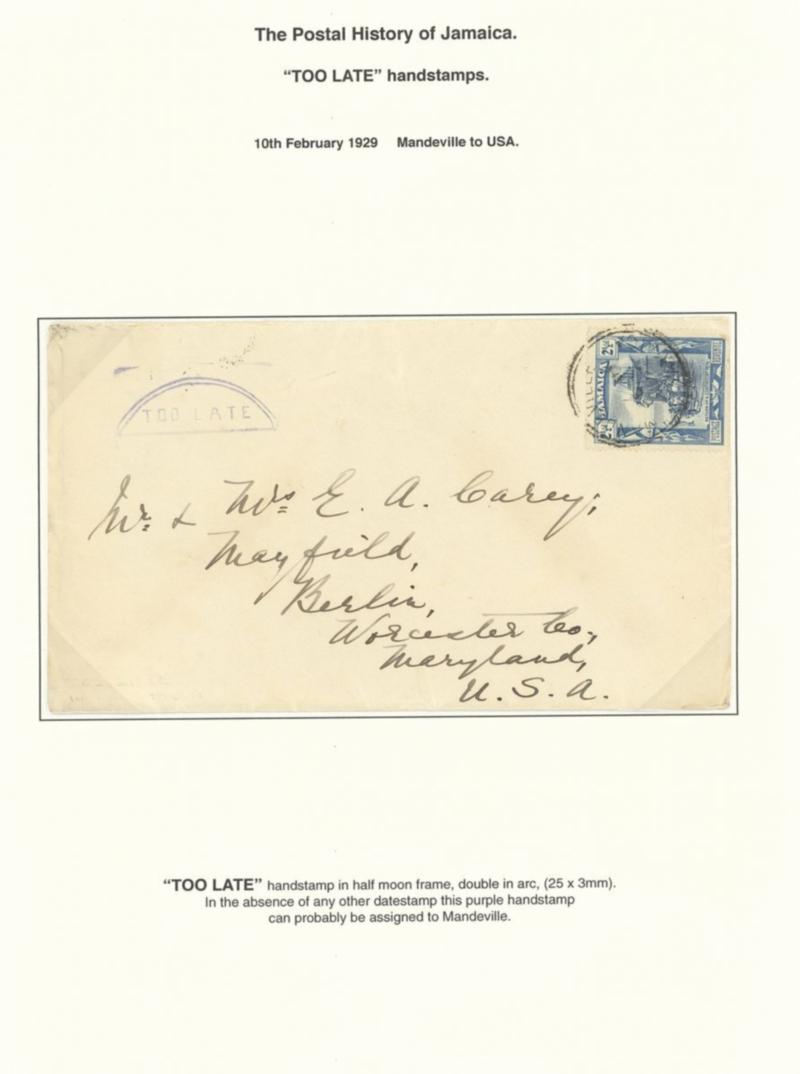 The Postal History of Jamaica.
“TOO LATE” handstamps.
10th February 1929 Mandeville to USA.
TOO LATE
2½
JAMAICA
2½
VILLE
Mr. & Mrs E. A. Carey,
Mayfield,
Berlin,
Worcester Co.,
Maryland,
U. S. A.
“TOO LATE” handstamp in half moon frame, double in arc, (25 x 3mm).
In the absence of any other datestamp this purple handstamp
can probably be assigned to Mandeville.